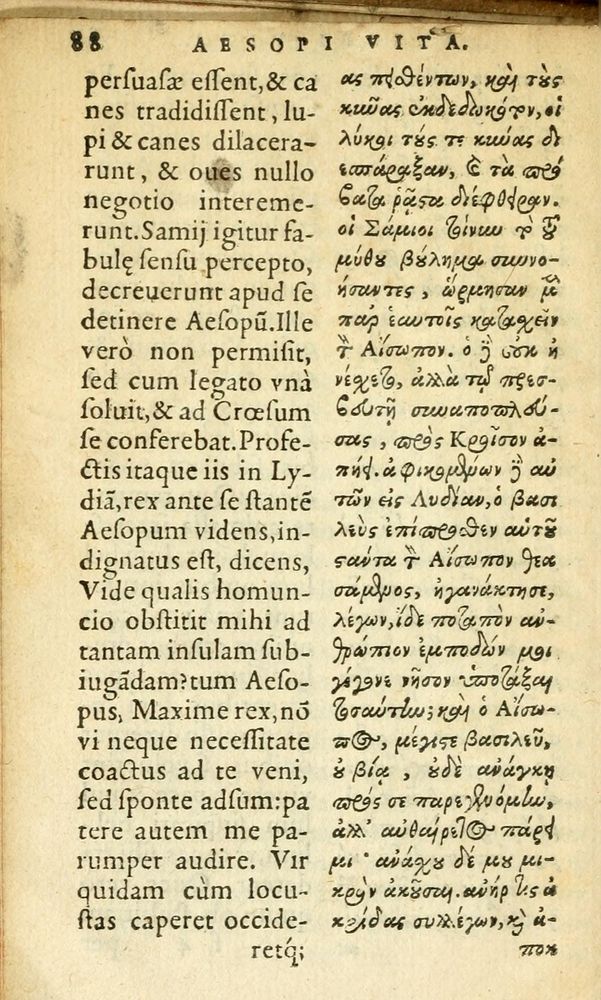 88 AESOPI VITA.
persuasæ essent, & ca
nes tradidissent, lu-
pi & canes dilacera-
runt, & oues nullo
negotio intereme-
runt. Samij igitur fa-
bulę sensu percepto,
decreuerunt apud se
detinere Aesopū. Ille
verò non permisit,
sed cum legato vnà
soluit, & ad Crœsum
se conferebat. Profe-
ctis itaque iis in Ly-
diā, rex ante se stantē
Aesopum videns, in-
dignatus est, dicens,
Vide qualis homun-
cio obstitit mihi ad
tantam insulam sub-
iugādam? tum Aeso-
pus, Maxime rex, nō
vi neque necessitate
coactus ad te veni,
sed sponte adsum: pa
tere autem me pa-
rumper audire. Vir
quidam cùm locu-
stas caperet occide-
retq́;
ας πειθέντων, καὶ τοὺς
κύνας ἐκδεδωκότων, οἱ
λύκοι τούς τε κύνας δι
εσπάραξαν, καὶ τὰ πρό
βατα ῥᾷστα διέφθειραν.
οἱ Σάμιοι τοίνυν τὸ τοῦ
μύθου βούλημα συννο-
ήσαντες, ὥρμησαν μὲν
παρ ἑαυτοῖς κατασχεῖν
τὸν Αἴσωπον. ὁ δὲ οὐκ ἠ
νέσχετο, ἀλλὰ τῷ πρεσ-
βευτῇ συναποπλεύ-
σας, πρὸς Κροῖσον ἀ-
πῄει. ἀφικομένων δὲ αὐ
τῶν εἰς Λυδίαν, ὁ βασι
λεὺς ἐπίπροσθεν αὐτοῦ
στάντα τὸν Αἴσωπον θεα
σάμενος, ἠγανάκτησε,
λέγων, ἴδε ποταπὸν ἀν-
θρώπιον ἐμποδών μοι
γέγονε νῆσον ὑποτάξαι
τοσαύτην; καὶ ὁ Αἴσω-
πος, μέγιστε βασιλεῦ,
οὐ βίᾳ, οὐδὲ ἀνάγκῃ
πρός σε παρεγενόμην,
ἀλλ' αὐθαίρετος πάρει
μι· ἀνάσχου δέ μου μι-
κρὸν ἀκοῦσαι. ἀνήρ τις ἀ
κρίδας συλλέγων, καὶ ἀ-
ποκ